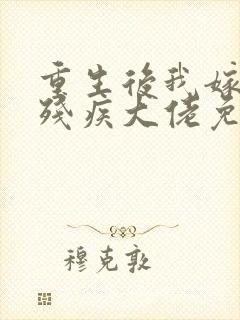 重生後我嫁
殘疾大佬免
穆克敦